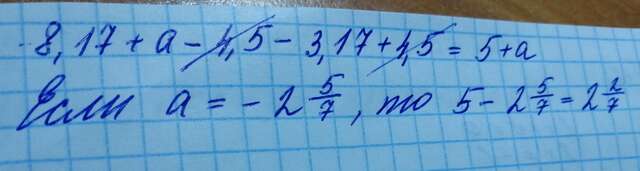 8,17 + a - 4,5 - 3,17 + 4,5 = 5 + a
Если a = - 2 5/7, то 5 - 2 5/7 = 2 2/7